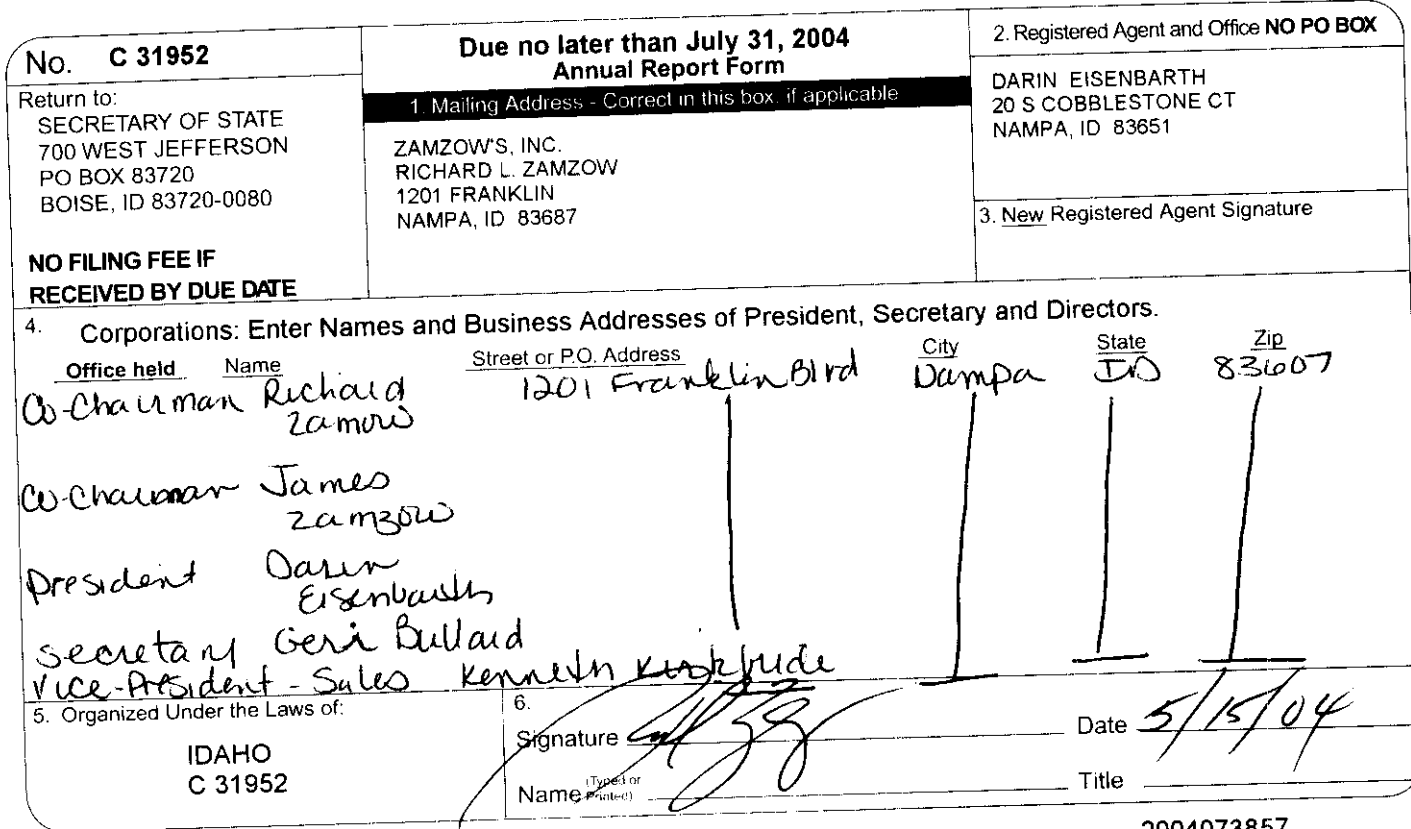 No. C 31952
Return to:
SECRETARY OF STATE
700 WEST JEFFERSON
PO BOX 83720
BOISE, ID 83720-0080
NO FILING FEE IF
RECEIVED BY DUE DATE
Due no later than July 31, 2004
Annual Report Form
1. Mailing Address - Correct in this box, if applicable
ZAMZOW'S, INC.
RICHARD L. ZAMZOW
1201 FRANKLIN
NAMPA, ID 83687
2. Registered Agent and Office NO PO BOX
DARIN EISENBARTH
20 S COBBLESTONE CT
NAMPA, ID 83651
3. New Registered Agent Signature
4. Corporations: Enter Names and Business Addresses of President, Secretary and Directors.
Office held Name Street or P.O. Address City State Zip
Co-Chairman Richard 1201 Franklin Blvd Nampa ID
Zamow
Co-Chairman James
Zamzow
President Darin
Eisenbarth
Secretary Geri Bullard
Vice-President - Sales Kenneth
5. Organized Under the Laws of:
IDAHO
C 31952
6.
Signature
Date 5/15/04
Name (Typed or Printed)
Title
2004073857